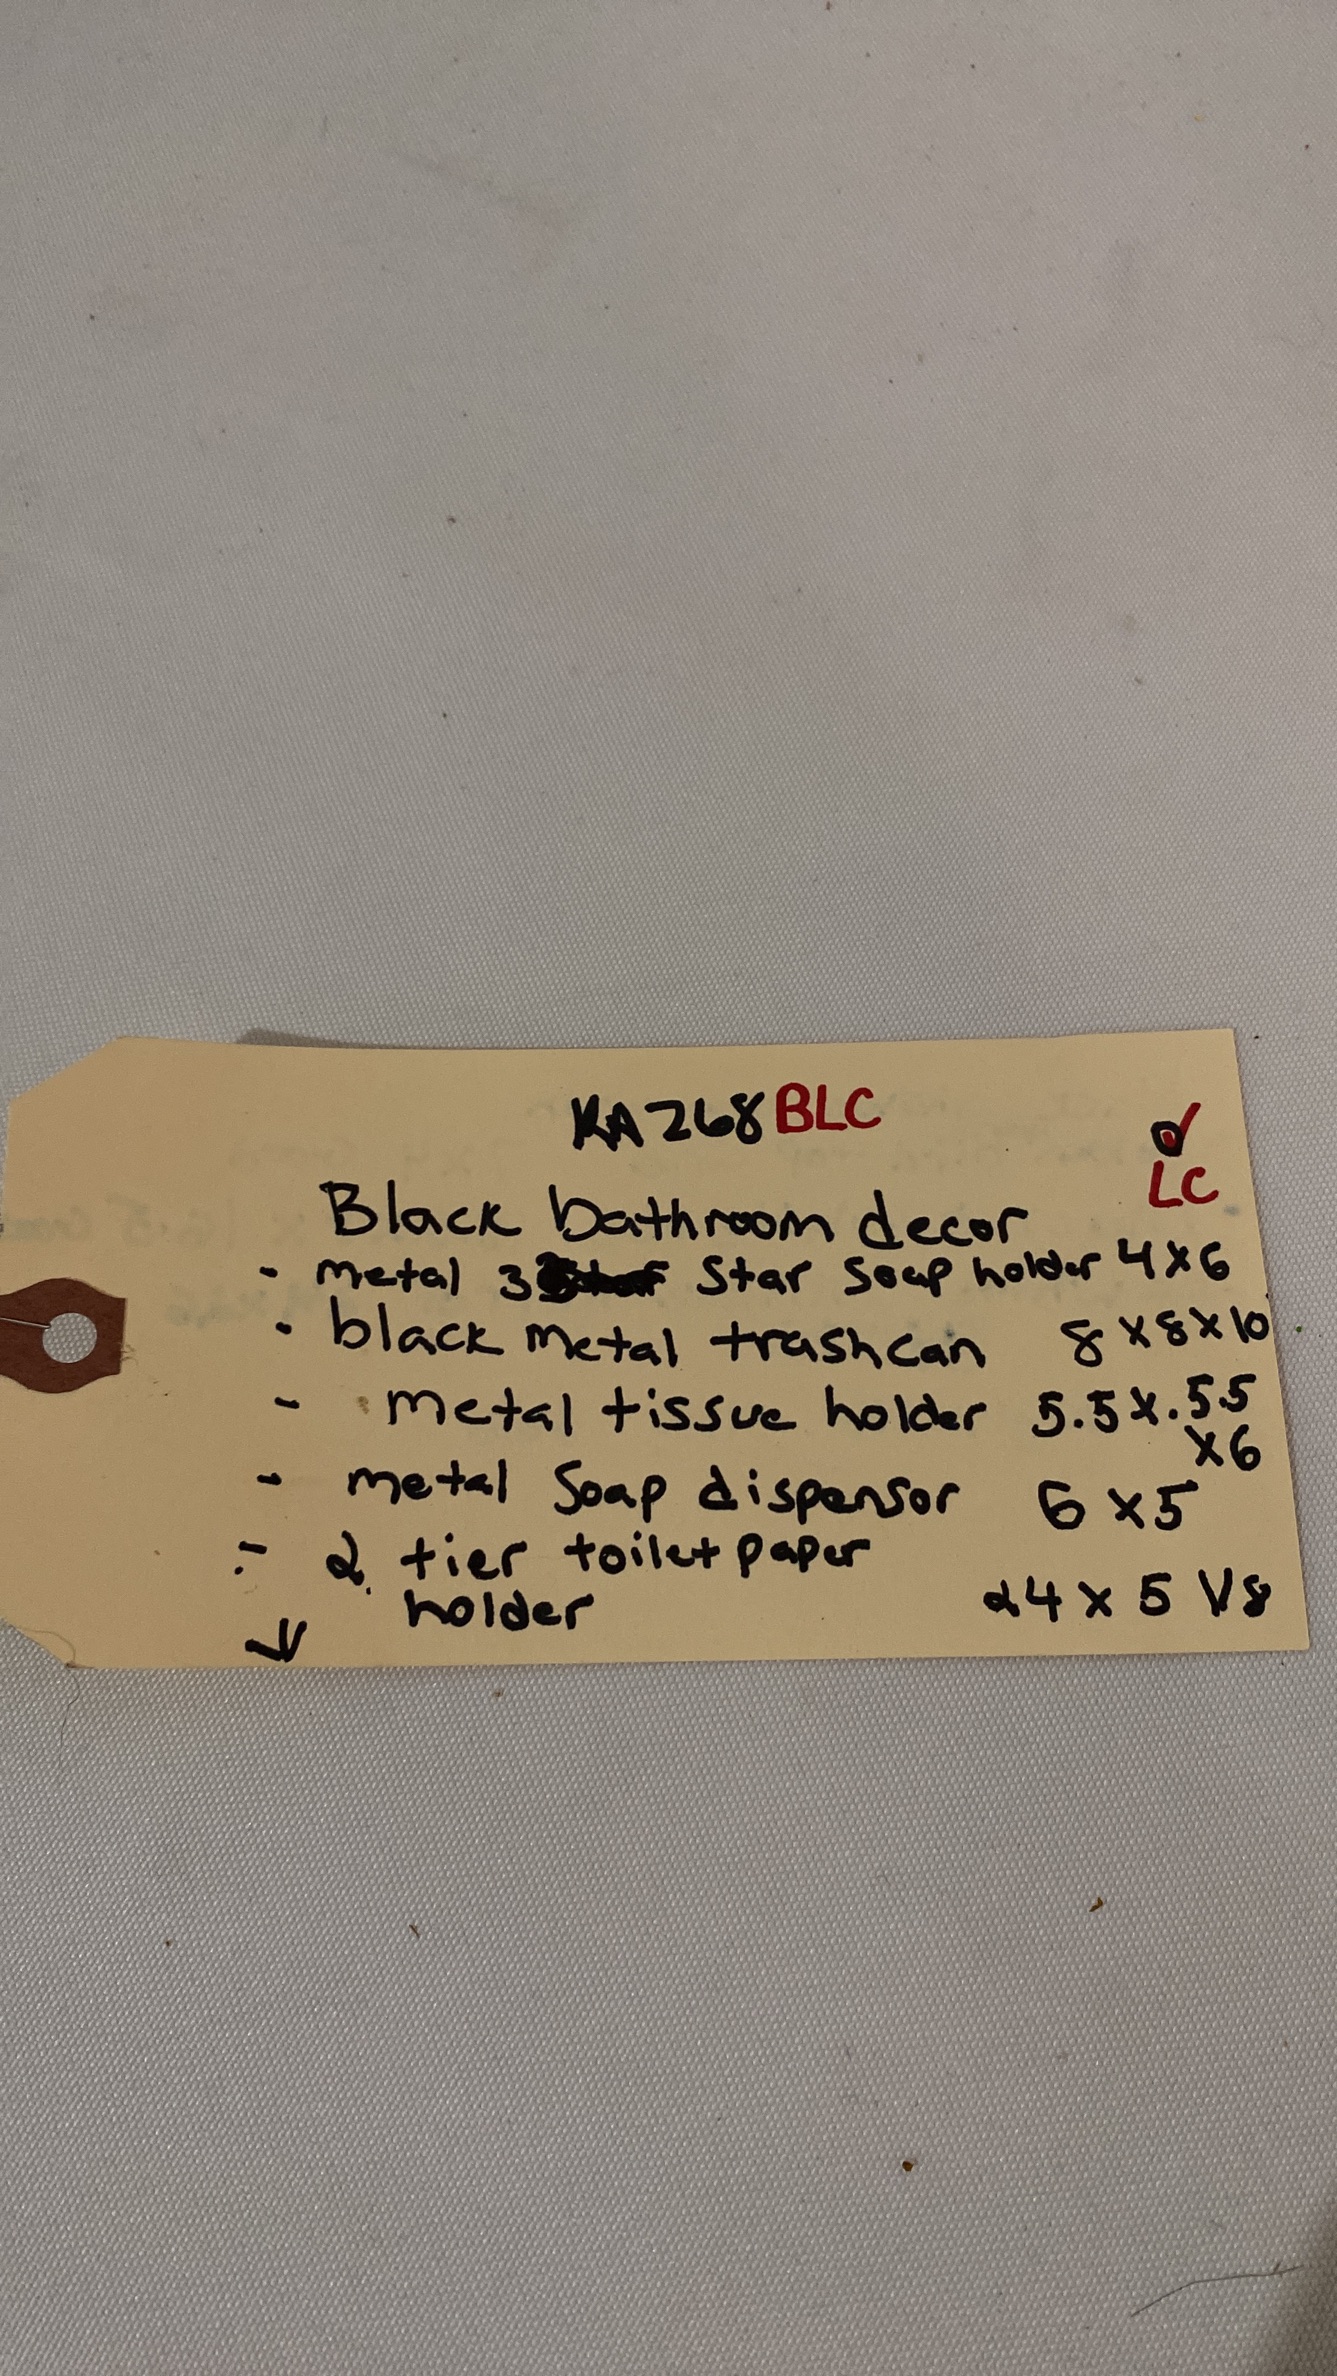 KA268 BLC
LC
Black bathroom decor
- metal 3 Star Soap holder 4x6
- black metal trashcan 8x8x10
- metal tissue holder 5.5x.5.5
x6
- metal Soap dispensor 6x5
- 2 tier toilet paper
holder 24x5 V8